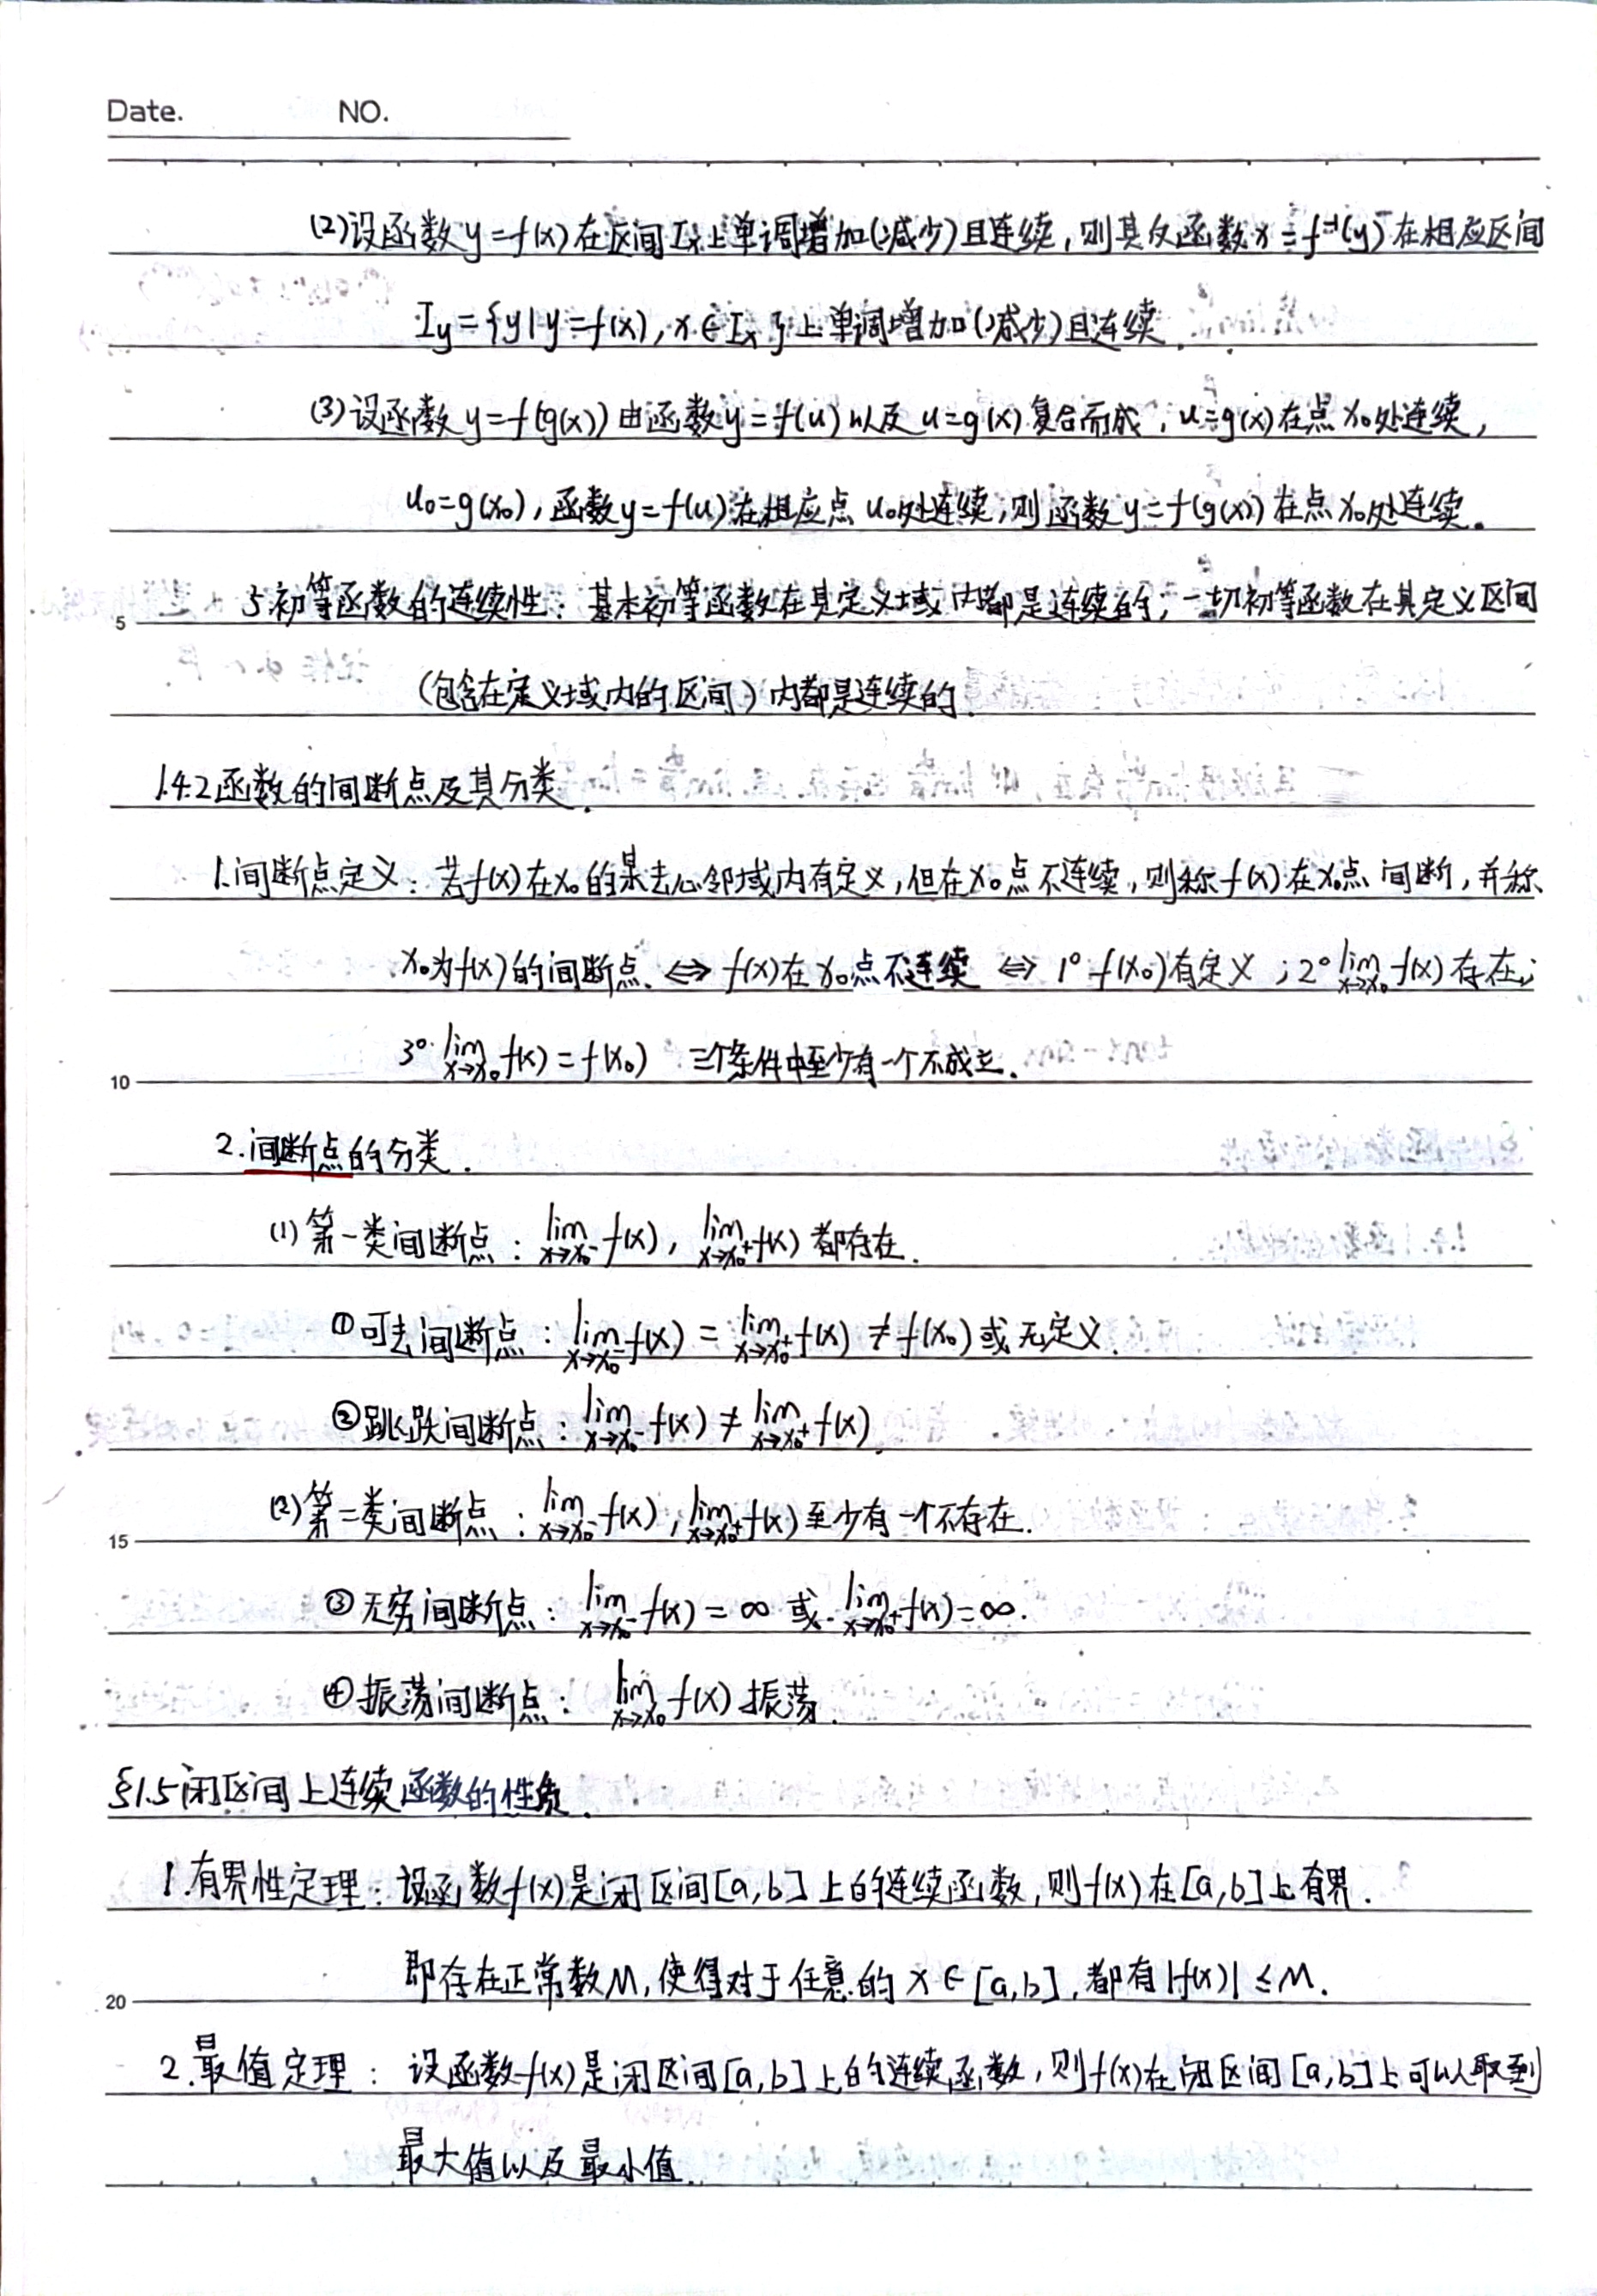 Date. NO.
(2)设函数y=f(x)在区间Iₓ上单调增加(减少)且连续,则其反函数x=f⁻¹(y)在相应区间
I_y={y|y=f(x),x∈Iₓ}上单调增加(减少)且连续.
(3)设函数y=f(g(x))由函数y=f(u)以及u=g(x)复合而成,u=g(x)在点x₀处连续,
u₀=g(x₀),函数y=f(u)在相应点u₀处连续,则函数y=f(g(x))在点x₀处连续.
5 5.初等函数的连续性:基本初等函数在其定义域内都是连续的,一切初等函数在其定义区间
(包含在定义域内的区间)内都是连续的.
1.4.2函数的间断点及其分类.
1.间断点定义:若f(x)在x₀的某去心邻域内有定义,但在x₀点不连续,则称f(x)在x₀点间断,并称
x₀为f(x)的间断点.⇔f(x)在x₀点不连续⇔1°f(x₀)有定义;2°lim_{x→x₀}f(x)存在;
10 3°lim_{x→x₀}f(x)=f(x₀) 三个条件中至少有一个不成立.
2.间断点的分类.
(1)第一类间断点:lim_{x→x₀⁻}f(x),lim_{x→x₀⁺}f(x)都存在.
①可去间断点:lim_{x→x₀⁻}f(x)=lim_{x→x₀⁺}f(x)≠f(x₀)或无定义.
②跳跃间断点:lim_{x→x₀⁻}f(x)≠lim_{x→x₀⁺}f(x).
15 (2)第二类间断点:lim_{x→x₀⁻}f(x),lim_{x→x₀⁺}f(x)至少有一个不存在.
③无穷间断点:lim_{x→x₀⁻}f(x)=∞或lim_{x→x₀⁺}f(x)=∞.
④振荡间断点:lim_{x→x₀}f(x)振荡.
§1.5闭区间上连续函数的性质.
1.有界性定理:设函数f(x)是闭区间[a,b]上的连续函数,则f(x)在[a,b]上有界.
20 即存在正常数M,使得对于任意的x∈[a,b],都有|f(x)|≤M.
2.最值定理:设函数f(x)是闭区间[a,b]上的连续函数,则f(x)在闭区间[a,b]上可以取到
最大值以及最小值.